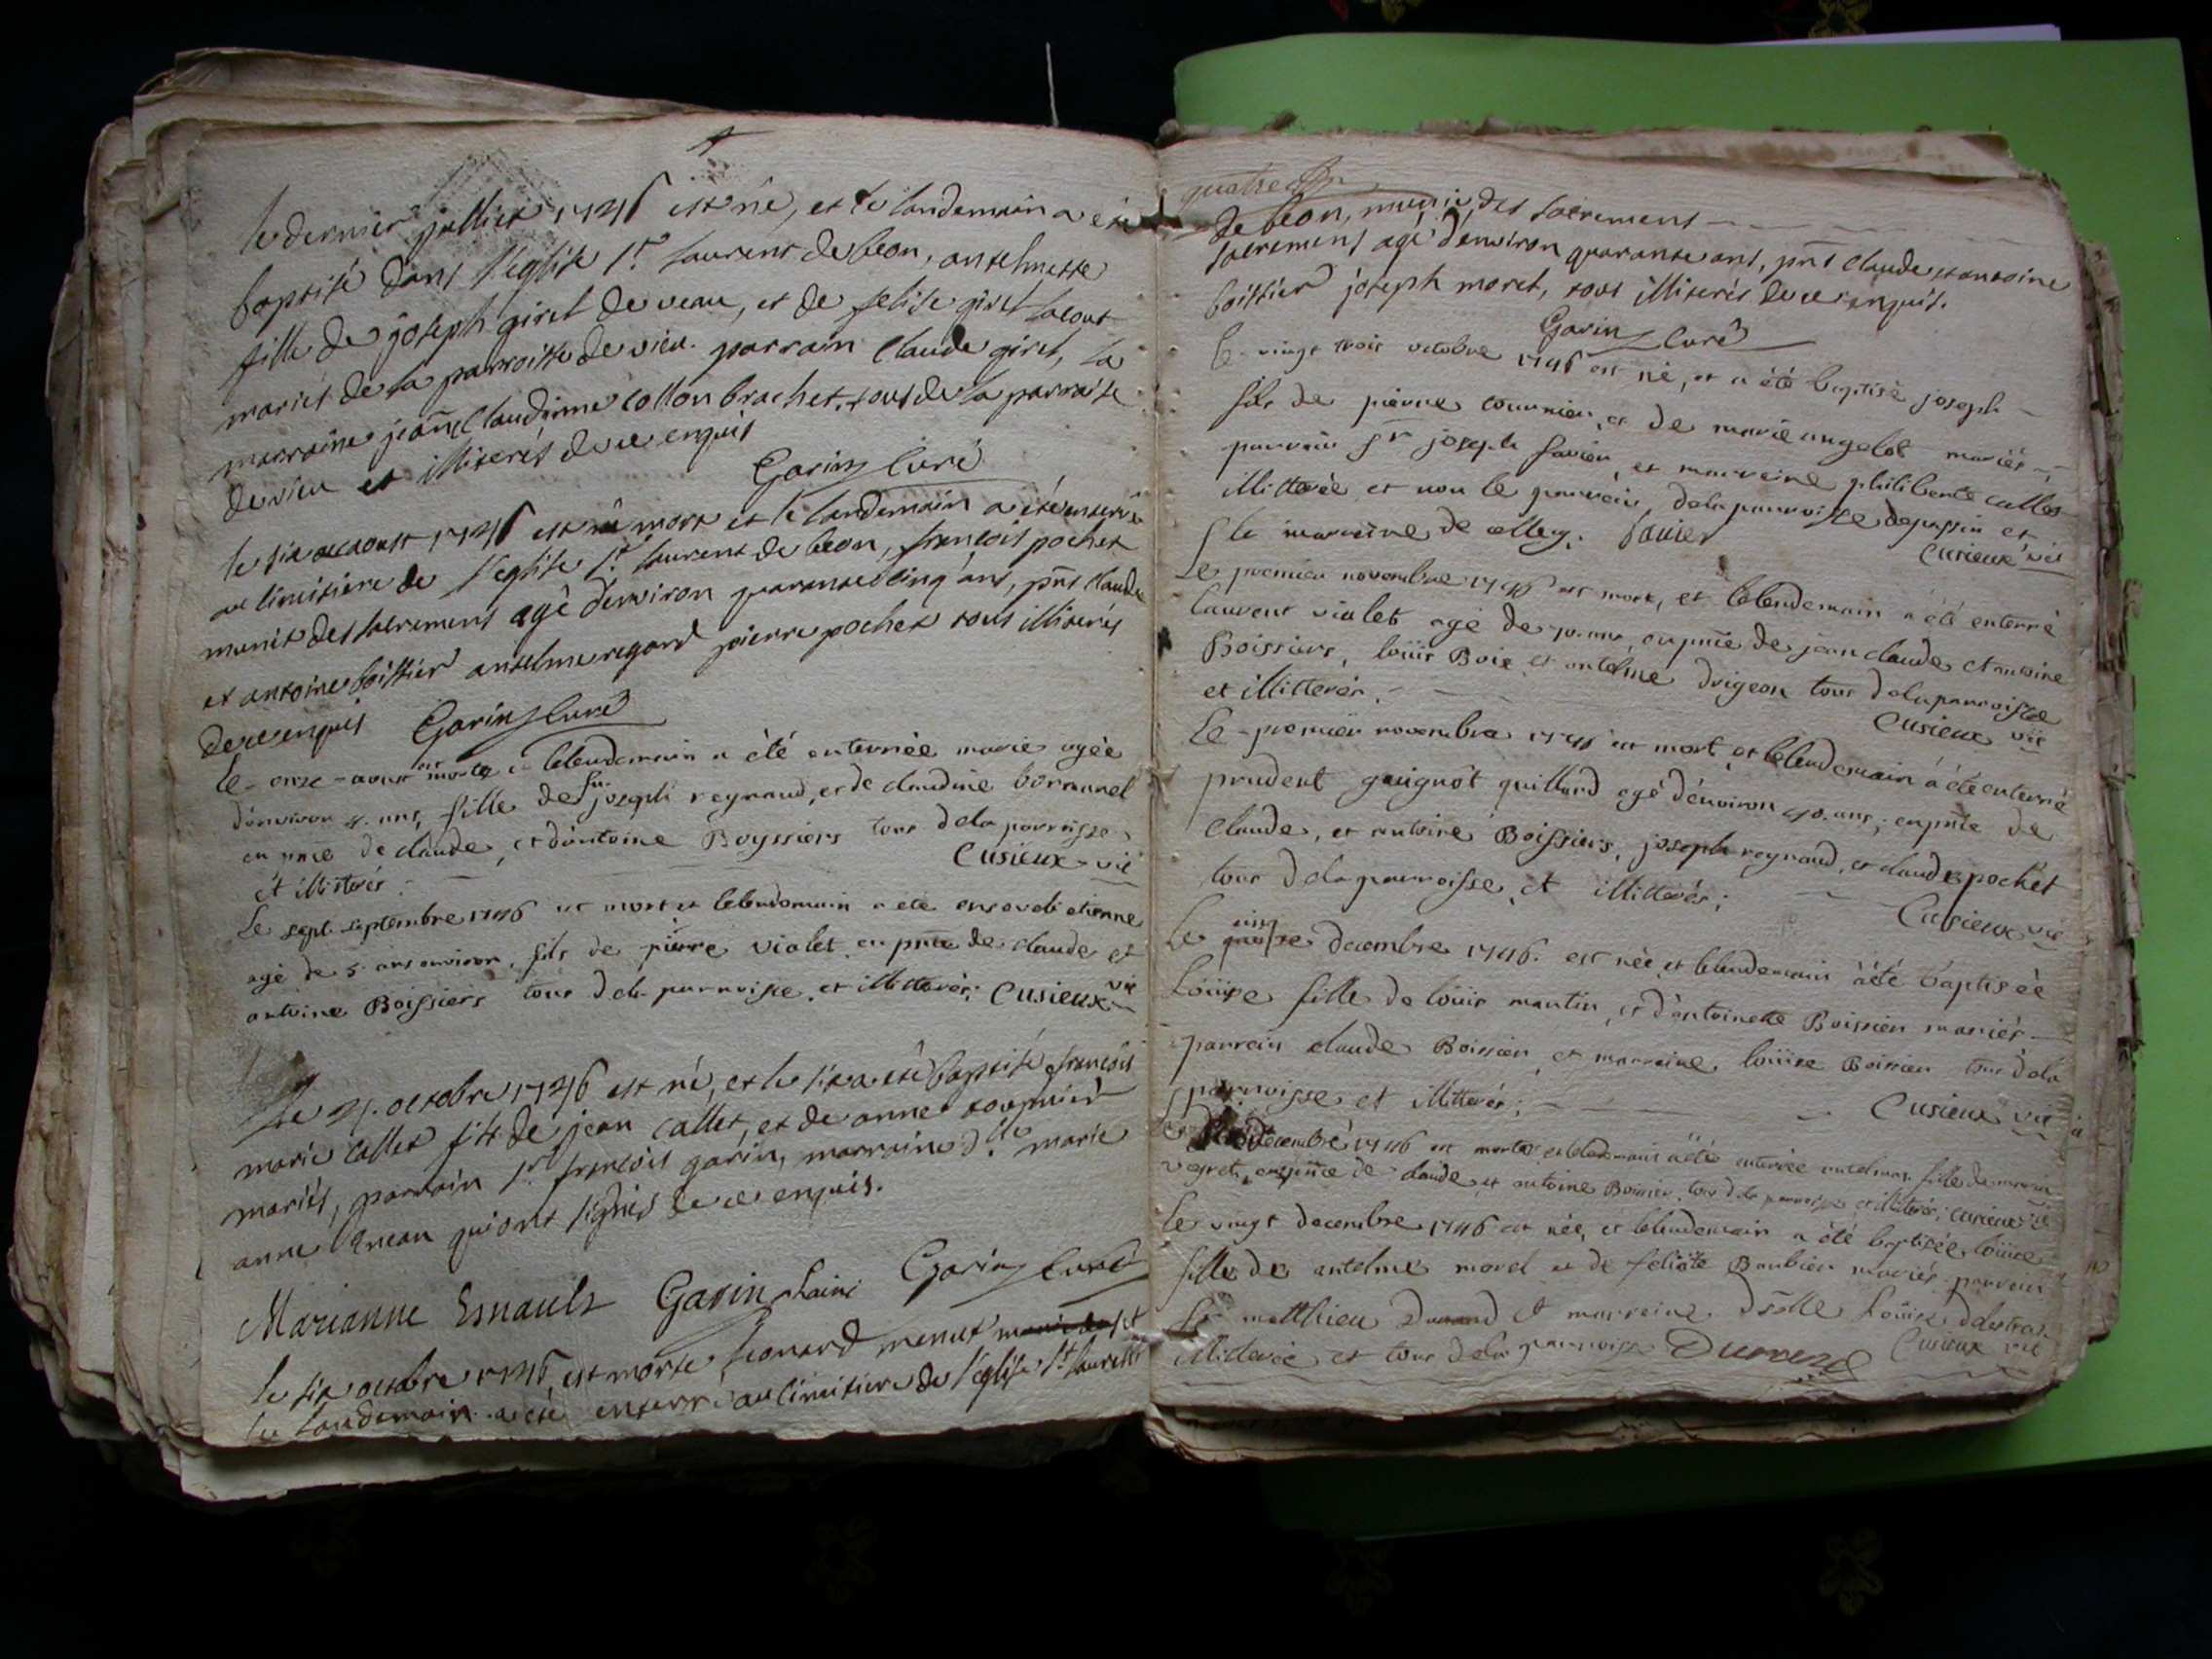 le dernier juilliet 1746 est né, et le landemain a été
baptisé dans l'eglise St. Laurent de beon, antelmette
fille de joseph girel de veau, et de felise girel
mariés de la parroisse de vieu. parrain Claude girel, la
marraine jeane Claudinne collon brachet, tous de la parroisse
de vieu et illiterés de ce enquis
Garin Curé
le six aoust 1746 est mort et le landemain a été enterré
au cimitiere de l'eglise St. Laurent de beon, francois pochet
munit des sacrements agé d'environ quarante cinq ans, pnts Claude
et antoine boissier antelme regard pierre pochet tous illiterés
de ce enquis Garin Curé
Le onze aoust est morte et lelendemain a été enterrée marie agée
d'environ 4. ans, fille de feu joseph reynaud, et de claudine
en pnce de claude, et d'antoine Boyssiers tous dela parroisse
et illitterés. Cusieux vic
Le sept septembre 1746 est mort et lelendemain a été enseveli etienne
agé de 5 ans environ, fils de pierre violet. en pnce de claude et
antoine Boissiers tous dela parroisse et illitterés; Cusieux vic
Le octobre 1746 est né, et le six a été baptisé francois
marie callet fils de jean callet, et de anne
mariés, parrain Sr. francois garin, marraine dlle. marie
anne Eneau qui ont signés de ce enquis.
Marianne Esnault Garin Curé
le six octobre 1746, est morte, Leonard menut et
le landemain a été enterré au cimitiere de l'eglise St. Laurent
de beon, munie des sacrements
sacrements agé d'environ quarante ans, pnts Claude et antoine
boissier joseph moret, tous illiterés de ce enquis.
Garin Curé
Le vingt trois octobre 1746 est né, et a été baptisé joseph
fils de pierre cournier, et de marie angelot mariés
parrain Sr joseph savier, et marraine philiberte callet
illitterée et non le parrain, dela parroisse et
la marraine de
Cusieux vic
Le premier novembre 1746 est mort, et lelendemain a été enterré
laurent violet agé de ans, en pnce de jean claude et antoine
Boissiers, loüis Boie et antelme drigeon tous dela parroisse
et illitterés. Cusieux vic
Le premier novembre 1746 est mort et lelendemain a été enterré
prudent guignot quillard agé d'environ ans, en pnce de
claude, et antoine Boissiers, joseph reynaud, et claude pochet
tous dela parroisse et illitterés; Cusieux vic
Le decembre 1746. est née et lelendemain a été baptisée
Loüise fille de loüis martin, et d'antoinette Boissier mariés
parrain claude Boissier et marraine loüise Boissier tous dela
parroisse et illitterés; Cusieux vic
Le decembre 1746 est morte et lelendemain a été enterrée antelme fille de
en pnce de claude et antoine Boissier tous dela parroisse et illiterés; Cusieux vic
Le vingt decembre 1746 est née, et lelendemain a été baptisée loüise
fille de antelme morel et de felicité Barbier mariés parrain
Sr matthieu Durand et marraine dslle Loüise
illiterée et tous dela parroisse Durand Cusieux vic